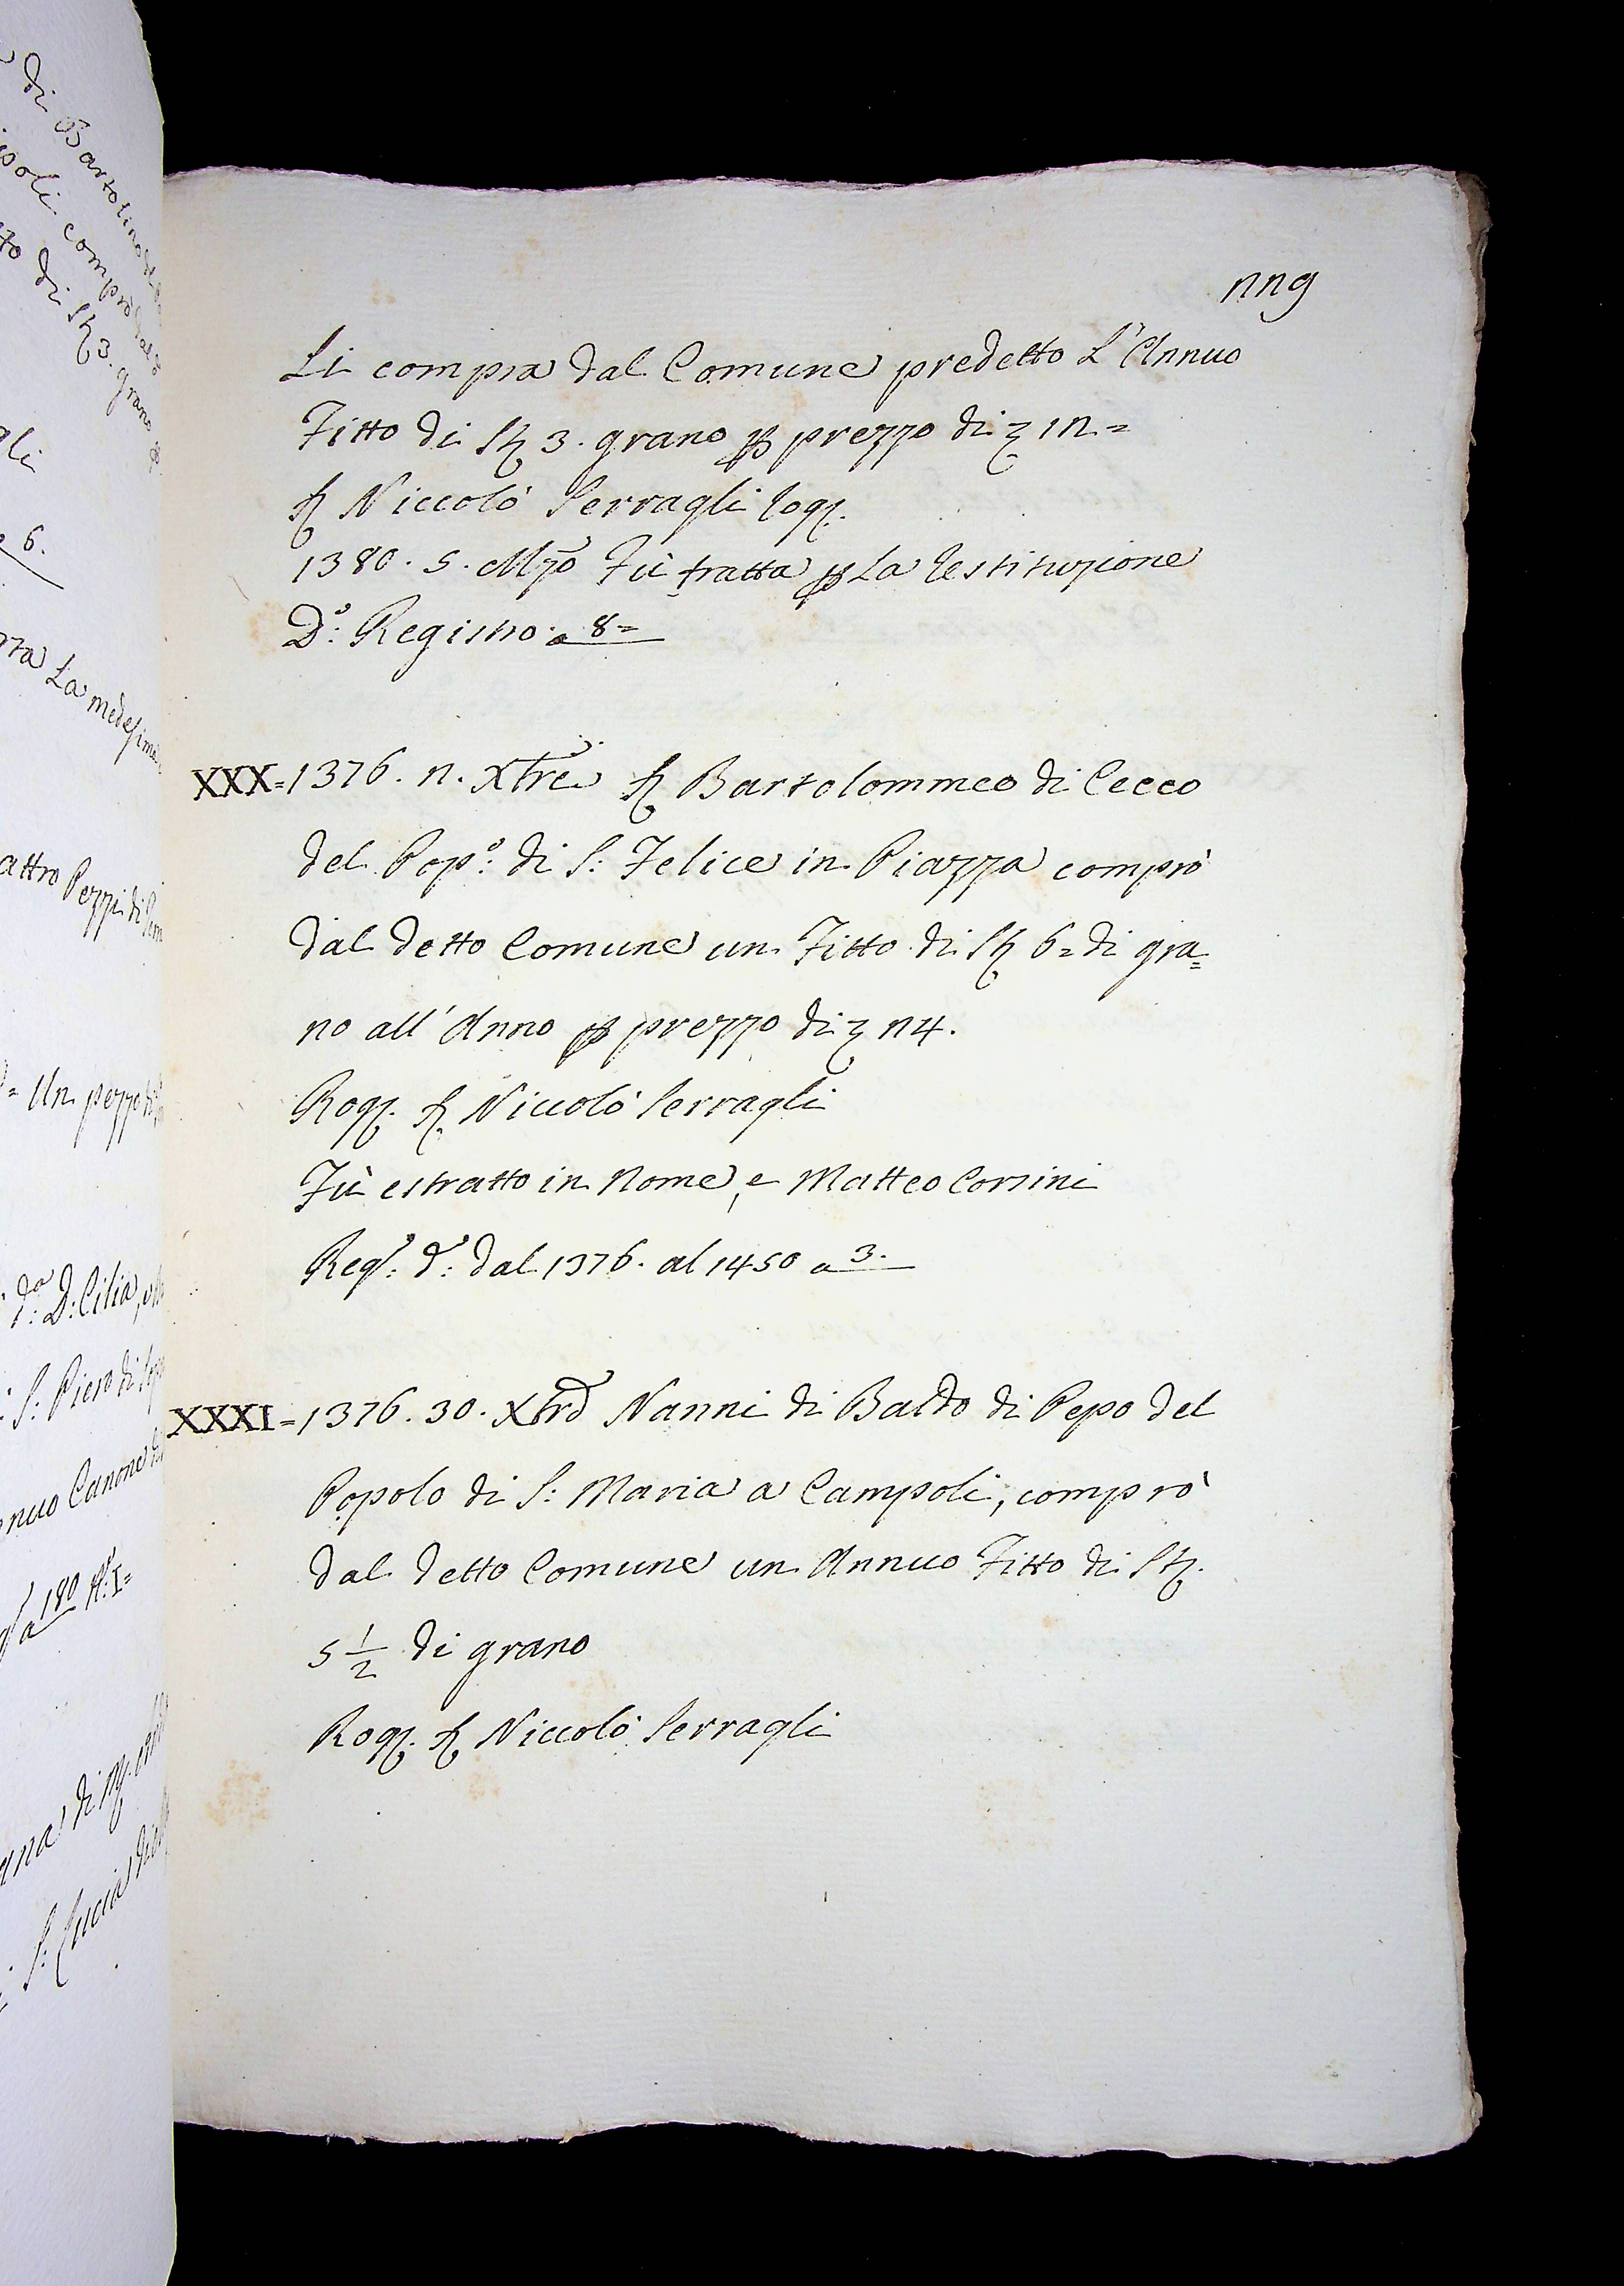 nng
Li compra dal Comune predetto L'Annuo
Fitto di St 3. grano p prezzo di ʒ 12=
Sr Niccolò Serragli Rog.
1380. 5. Mzo Fù tratta p La Restituzione
Do: Registro a 8=
XXX=1376. n. Xbre Sr Bartolommeo di Cecco
del Popo: di S: Felice in Piazza comprò
dal detto Comune un Fitto di St 6= di gra=
no all'Anno p prezzo di ʒ 24.
Rog. Sr Niccolò Serragli
Fù estratto in Nome, e Matteo Corsini
Rego: do: dal 1376. al 1450 a 3.
XXXI=1376. 30. Xbre Nanni di Baldo di Pepo del
Popolo di S: Maria a Campoli, comprò
dal detto Comune un Annuo Fitto di St.
5 1/2 di grano
Rog. Sr Niccolò Serragli
di Bartolino
compro
di St 3. grano
6.
La medesima
Pezzi di
Un pezzo
D: Cilia,
S: Piero di
Canone
a 180
S: Lucia